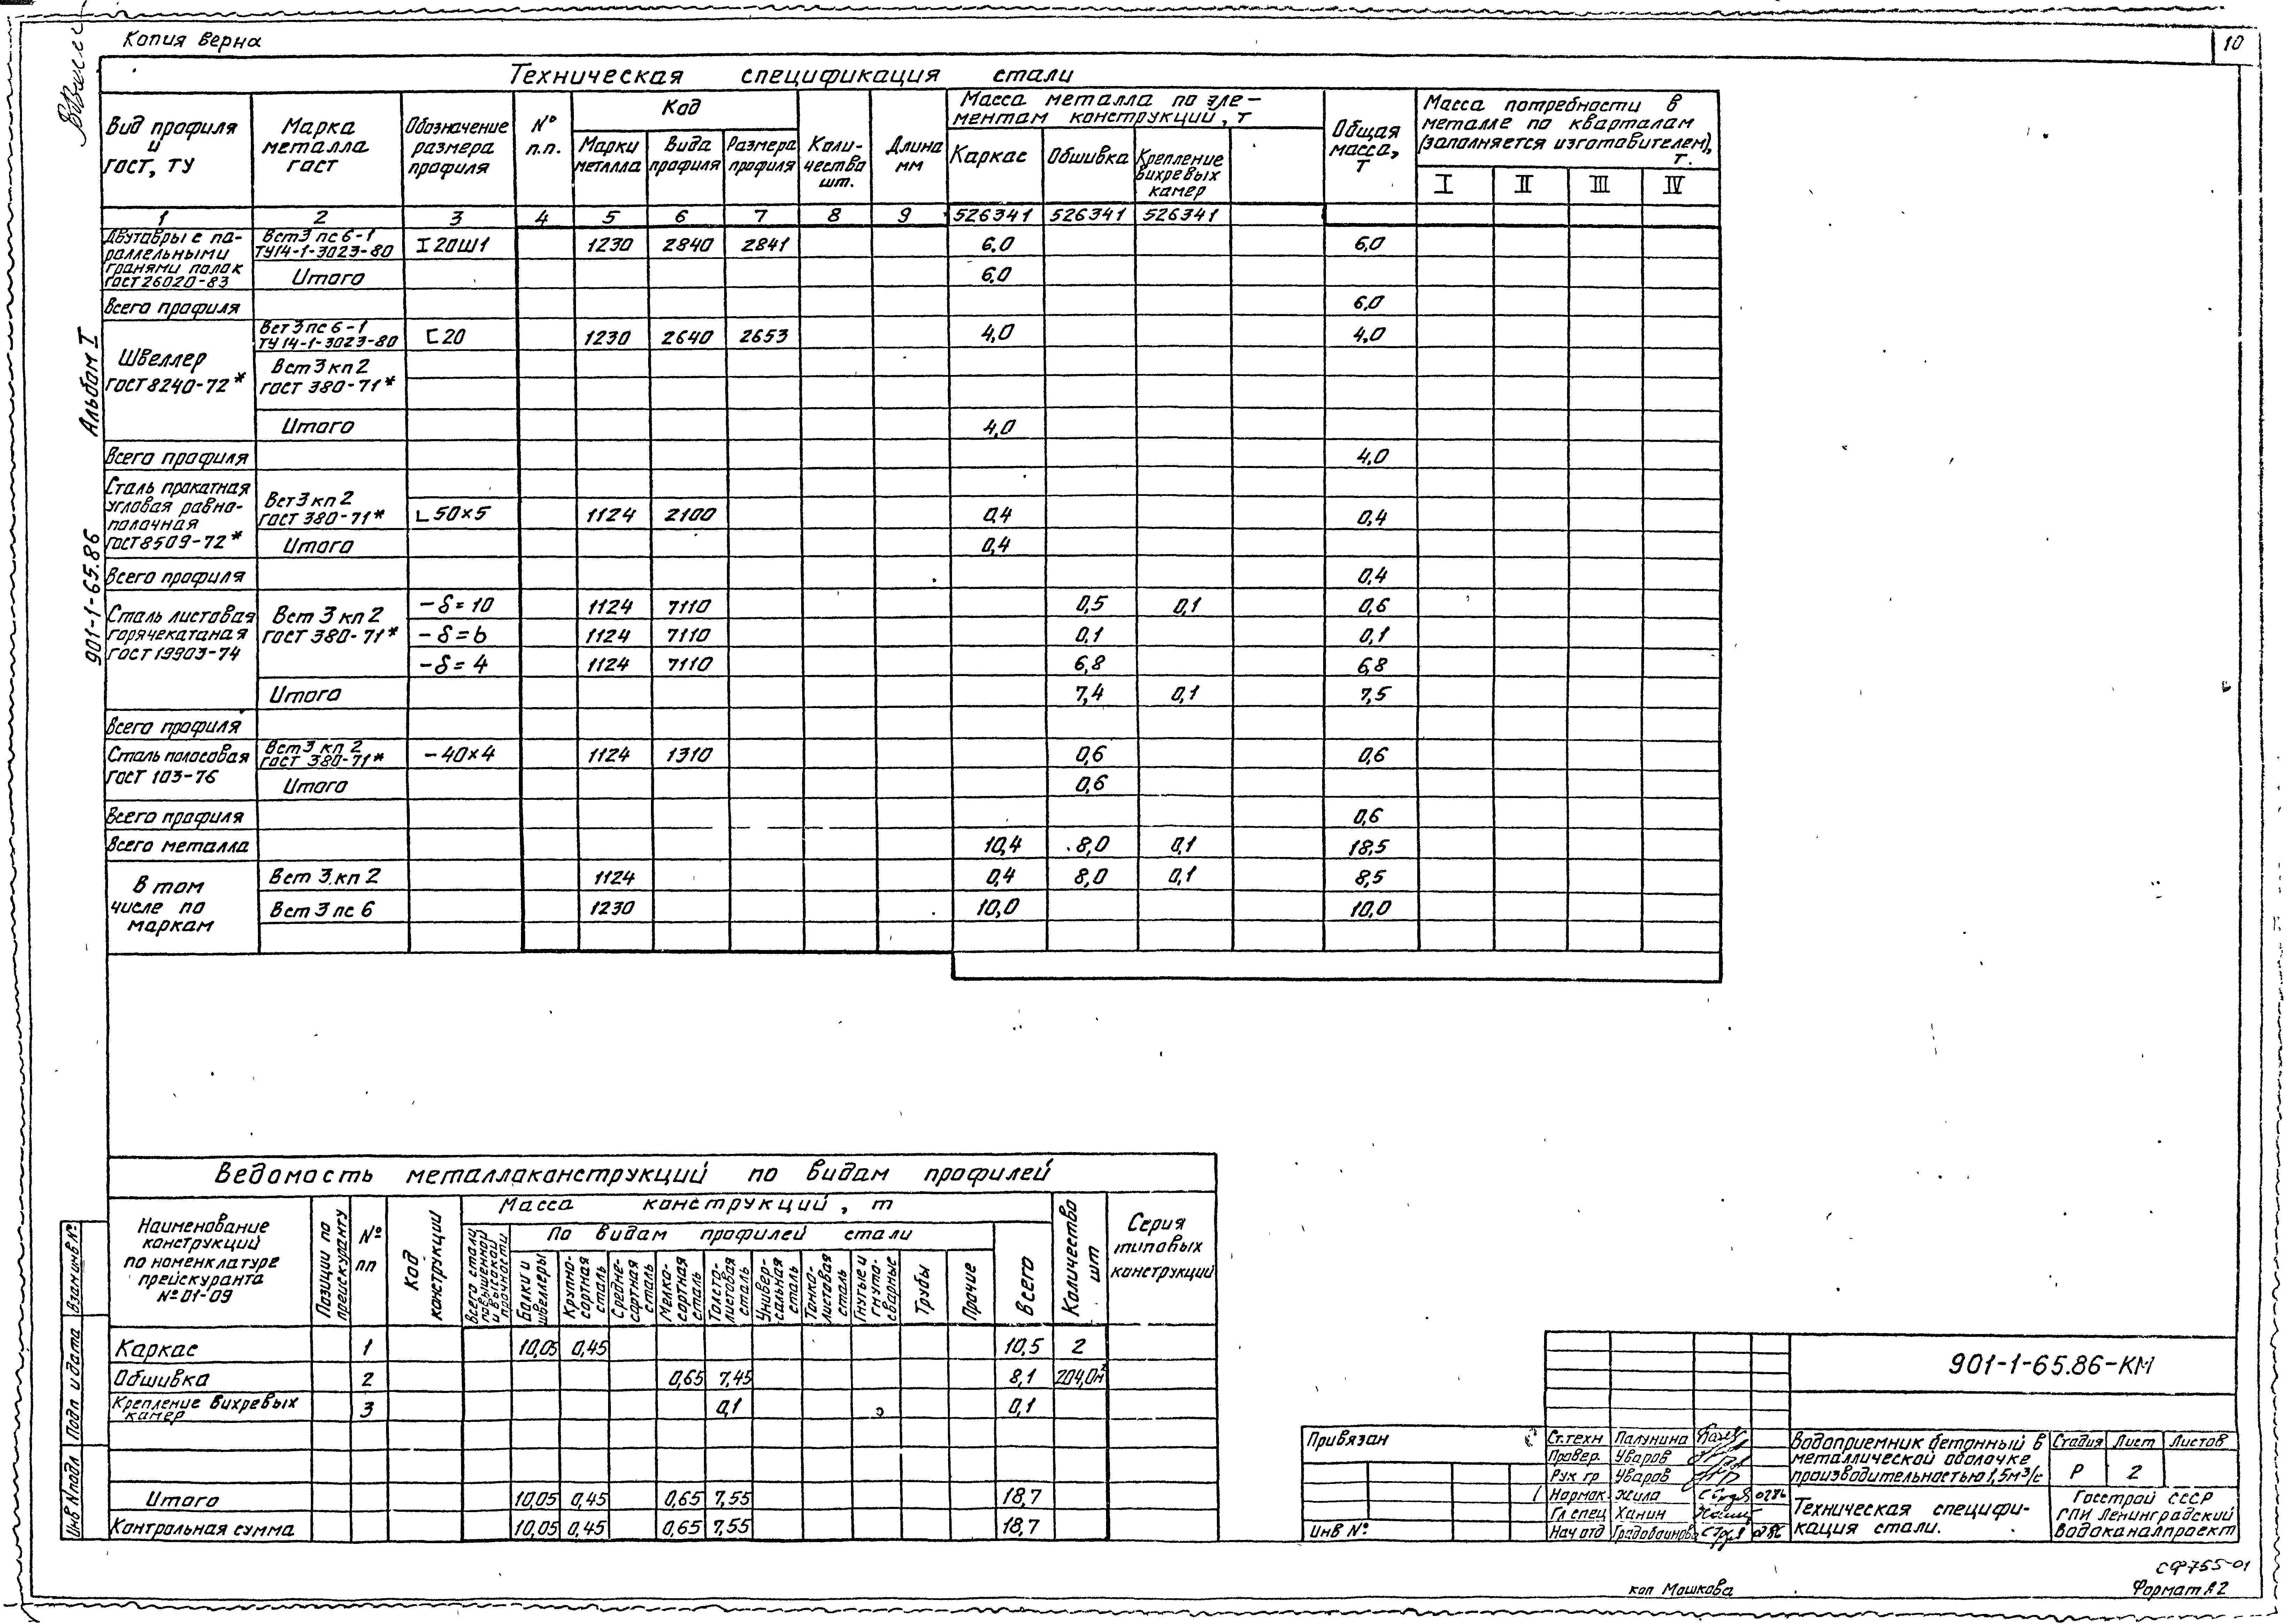 Копия верна
10
Техническая спецификация стали
Вид профиля и ГОСТ, ТУ
Марка металла ГОСТ
Обозначение размера профиля
№ п.п.
Код
Марки металла
Вида профиля
Размера профиля
Количества шт.
Длина мм
Масса металла по элементам конструкций, т
Каркас
Обшивка
Крепление вихревых камер
Общая масса, т
Масса потребности в металле по кварталам (заполняется изготовителем), т.
I II III IV
1 2 3 4 5 6 7 8 9 526341 526341 526341
Двутавры с параллельными гранями полок ГОСТ 26020-83
Вст3пс6-1 ТУ14-1-3023-80 I 20Ш1 1230 2840 2841 6.0 6,0
Итого 6,0
Всего профиля 6,0
Швеллер ГОСТ 8240-72*
Вст3пс6-1 ТУ14-1-3023-80 [ 20 1230 2640 2653 4,0 4,0
Вст3кп2 ГОСТ 380-71*
Итого 4,0
Всего профиля 4,0
Сталь прокатная угловая равнополочная ГОСТ 8509-72*
Вст3кп2 ГОСТ 380-71* ∟50×5 1124 2100 0,4 0,4
Итого 0,4
Всего профиля 0,4
Сталь листовая горячекатаная ГОСТ 19903-74
Вст3кп2 ГОСТ 380-71*
-δ=10 1124 7110 0,5 0,1 0,6
-δ=6 1124 7110 0,1 0,1
-δ=4 1124 7110 6,8 6,8
Итого 7,4 0,1 7,5
Всего профиля
Сталь полосовая ГОСТ 103-76
Вст3 кп2 ГОСТ 380-71* -40×4 1124 1310 0,6 0,6
Итого 0,6
Всего профиля 0,6
Всего металла 10,4 8,0 0,1 18,5
В том числе по маркам
Вст3кп2 1124 0,4 8,0 0,1 8,5
Вст3пс6 1230 10,0 10,0
Альбом I
901-1-65.86
Ведомость металлоконструкций по видам профилей
Наименование конструкций по номенклатуре прейскуранта № 01-09
Позиции по прейскуранту
№ пп
Код конструкции
Масса конструкций, т
Всего стали повышенной и высокой прочности
По видам профилей стали
Балки и швеллеры
Крупносортная сталь
Среднесортная сталь
Мелкосортная сталь
Толстолистовая сталь
Универсальная сталь
Тонколистовая сталь
Гнутые и гнутосварные
Трубы
Прочие
Всего
Количество шт
Серия типовых конструкций
Каркас 1 10,05 0,45 10,5 2
Обшивка 2 0,65 7,45 8,1 204,0м²
Крепление вихревых камер 3 0,1 0,1
Итого 10,05 0,45 0,65 7,55 18,7
Контрольная сумма 10,05 0,45 0,65 7,55 18,7
Взам инв №
Подп и дата
Инв № подл
Привязан
Инв №
901-1-65.86-КМ
Ст. техн Палунина
Провер. Уваров
Рук гр Уваров
Нормок Жила 0286
Гл спец Ханин
Нач отд 0286
Водоприемник бетонный в металлической оболочке производительностью 1,5м³/с
Стадия Лист Листов
Р 2
Техническая спецификация стали.
Госстрой СССР
ГПИ Ленинградский
Водоканалпроект
СФ755-01
коп Машкова
Формат А2